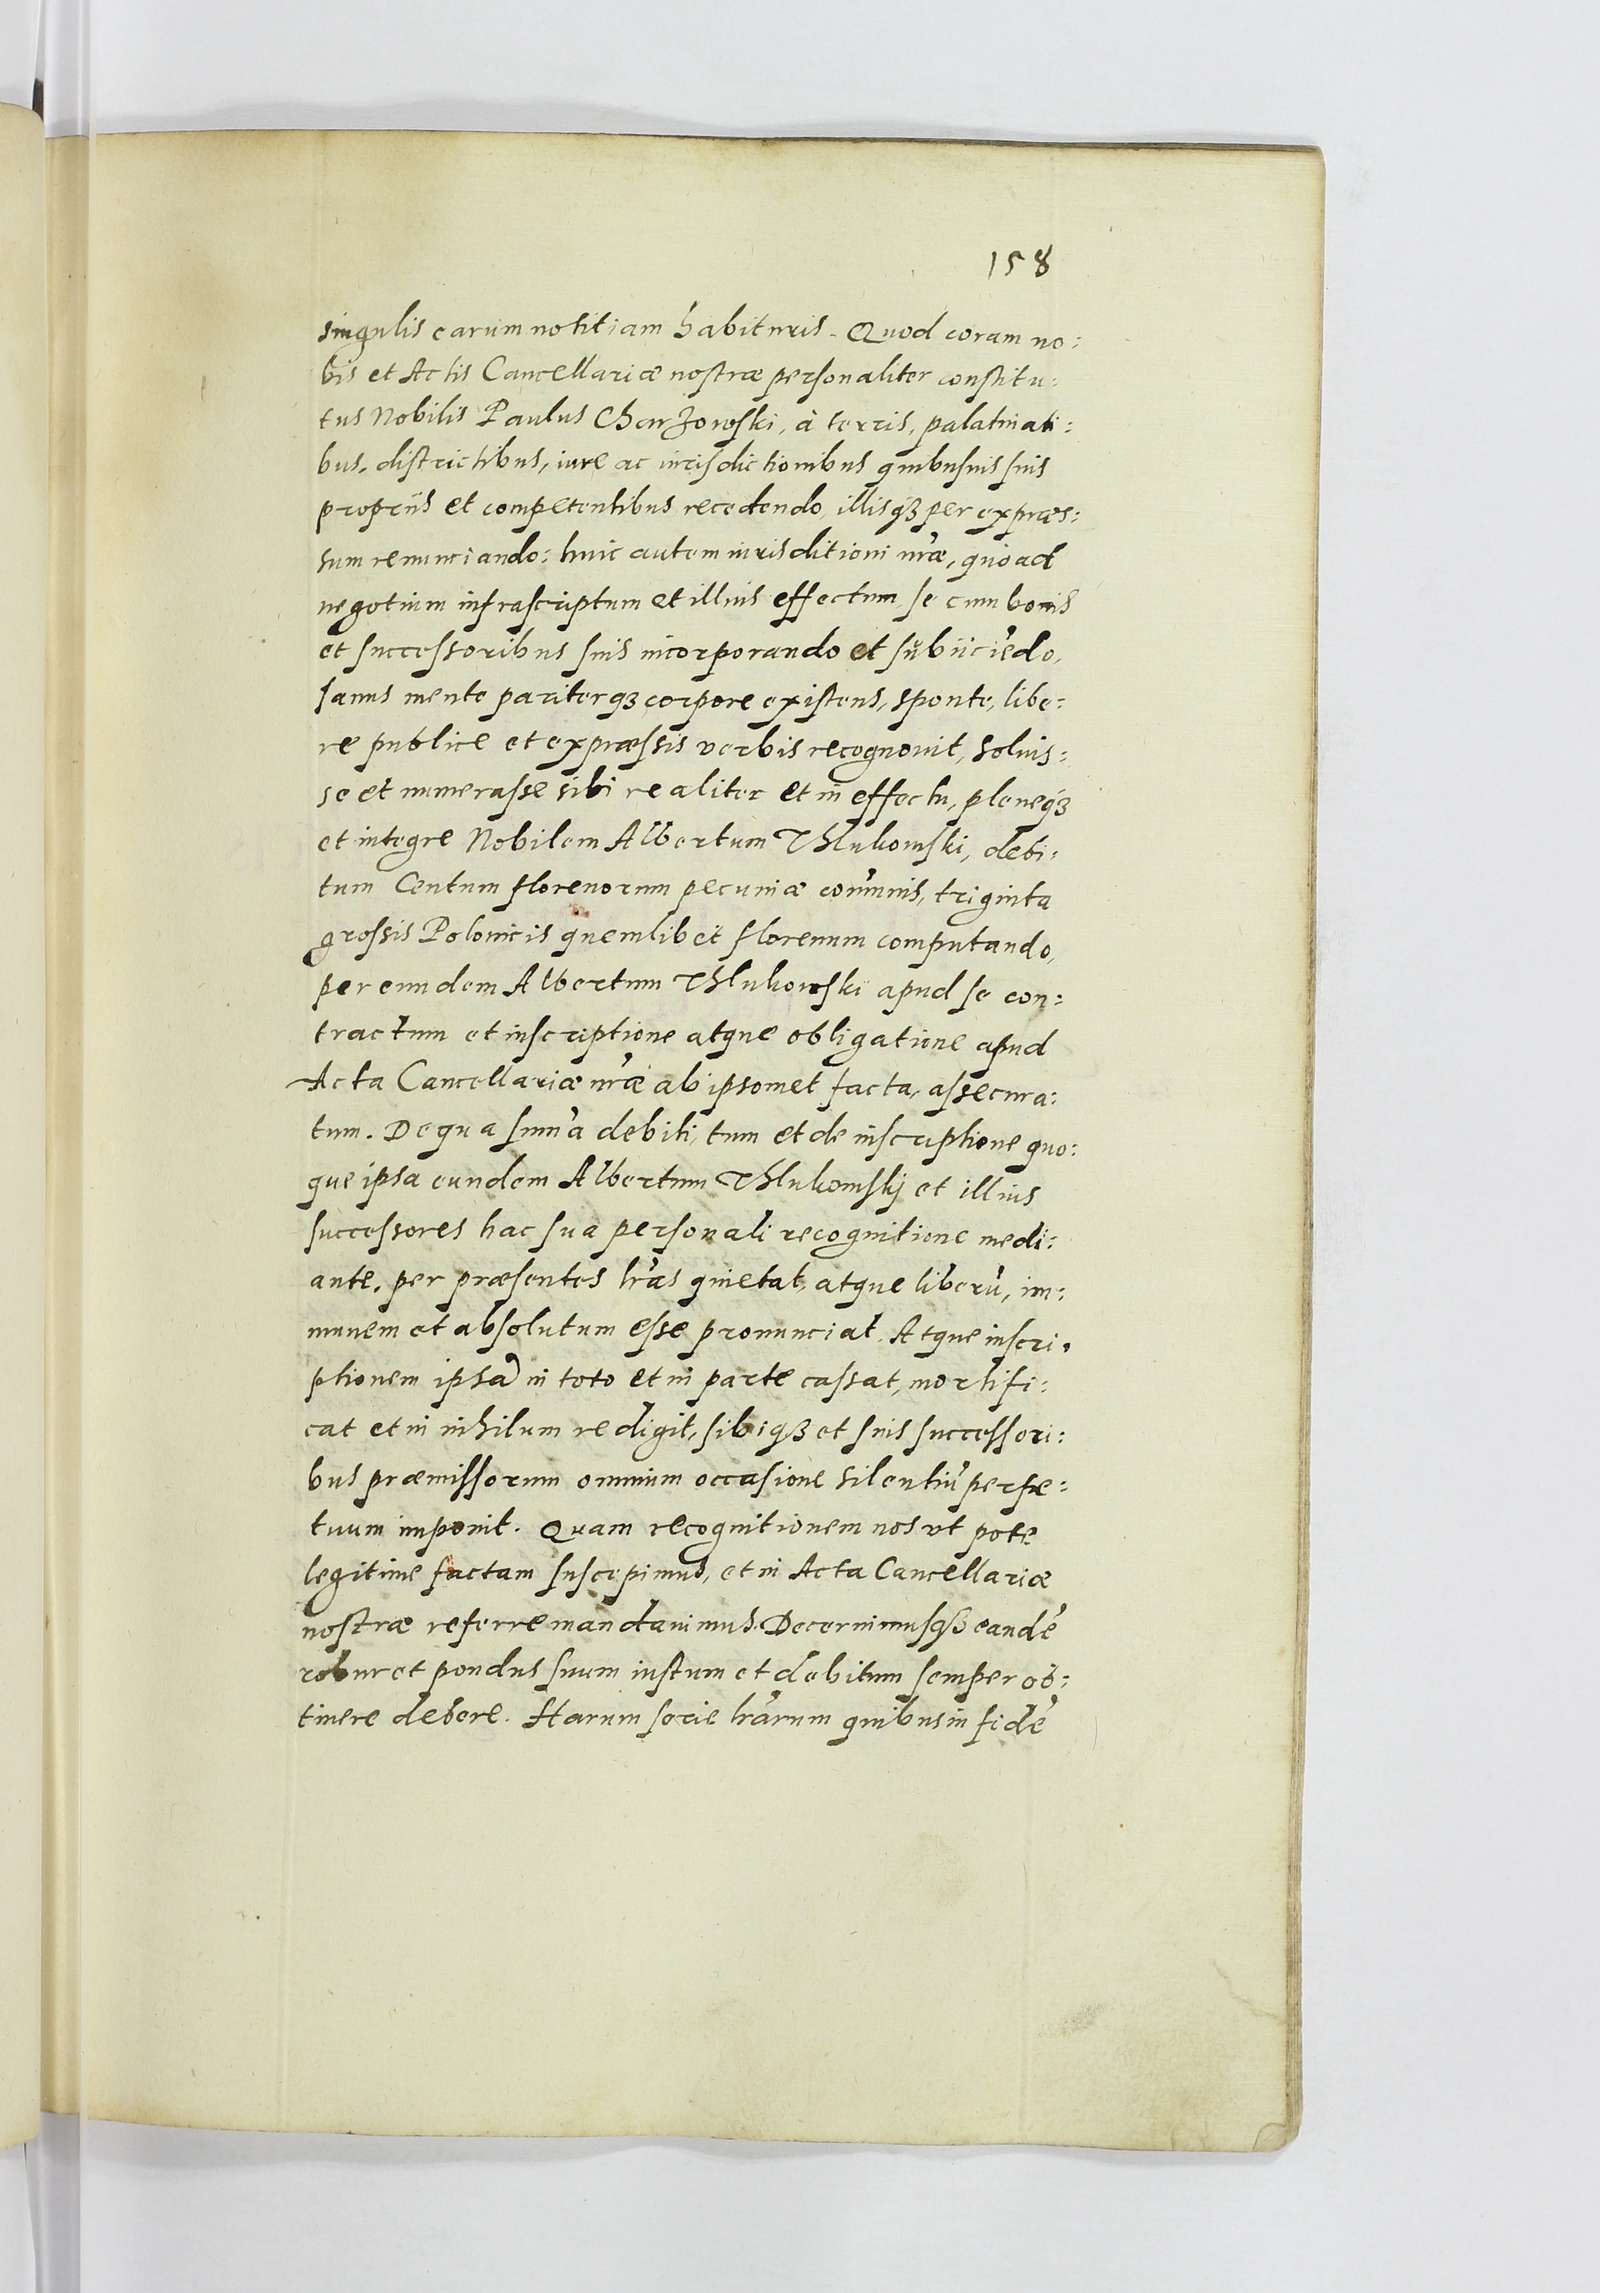 158
singulis earum notitiam habituris. Quod coram no:
bis et Actis Cancellariæ nostræ personaliter constitu:
tus Nobilis Paulus Charzowski, à terris, palatinati:
bus, districtibus, iure ac iurisdictionibus quibusuis suis
proprijs et competentibus recedendo, illisqȝ per expræs:
sum renunciando: huic autem iurisditioni nr̃æ, quo ad
negotium infrascriptum et illius effectum, se cum bonis
et successoribus suis incorporando et subiiciẽdo,
sanus mente pariterqȝ corpore existens, sponte, libe:
re publice et expræssis verbis recognouit, soluis:
se et numerasse sibi realiter et in effectu, pleneqȝ
et integre Nobilem Albertum Thlukowski, debi:
tum Centum florenorum pecuniæ cõmunis, triginta
grossis Polonicis quemlibet florenum computando,
per eundem Albertum Thlukowski apud se con:
tractum et inscriptione atque obligatione apud
Acta Cancellariæ nr̃æ ab ipsomet facta, assecura:
tum. De qua sum̃a debiti, tum et de inscriptione quo:
que ipsa eundem Albertum Thlukowskj et illius
successores hac sua personali recognitione medi:
ante, per præsentes lr̃as quietat, atque liberũ, im:
munem et absolutum esse pronunciat. Atque inscri:
ptionem ipsã in toto et in parte cassat, mortifi:
cat et in nihilum redigit, sibiqȝ et suis successori:
bus præmissorum omnium occasione silentiũ perpe:
tuum imponit. Quam recognitionem nos vt pote
legitime factam suscepimus, et in Acta Cancellariæ
nostræ referre mandauimus. Decernimusqȝ eandẽ
robur et pondus suum iustum et debitum semper ob:
tinere debere. Harum serie lr̃arum quibus in fidẽ